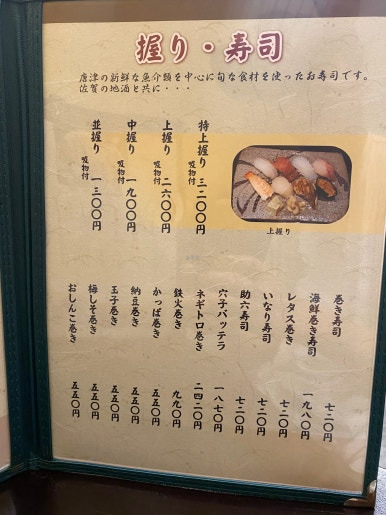 握り・寿司
唐津の新鮮な魚介類を中心に旬な食材を使ったお寿司です。
佐賀の地酒と共に・・・
特上握り 三二〇〇円
上握り 吸物付 二六〇〇円
中握り 吸物付 一九〇〇円
並握り 吸物付 一三〇〇円
上握り
巻き寿司 七二〇円
海鮮巻き寿司 一九八〇円
レタス巻き 七二〇円
いなり寿司 七二〇円
助六寿司 七二〇円
穴子バッテラ 一八七〇円
ネギトロ巻き 二四二〇円
鉄火巻き 九九〇円
かっぱ巻き 五五〇円
納豆巻き 五五〇円
玉子巻き 五五〇円
梅しそ巻き 五五〇円
おしんこ巻き 五五〇円